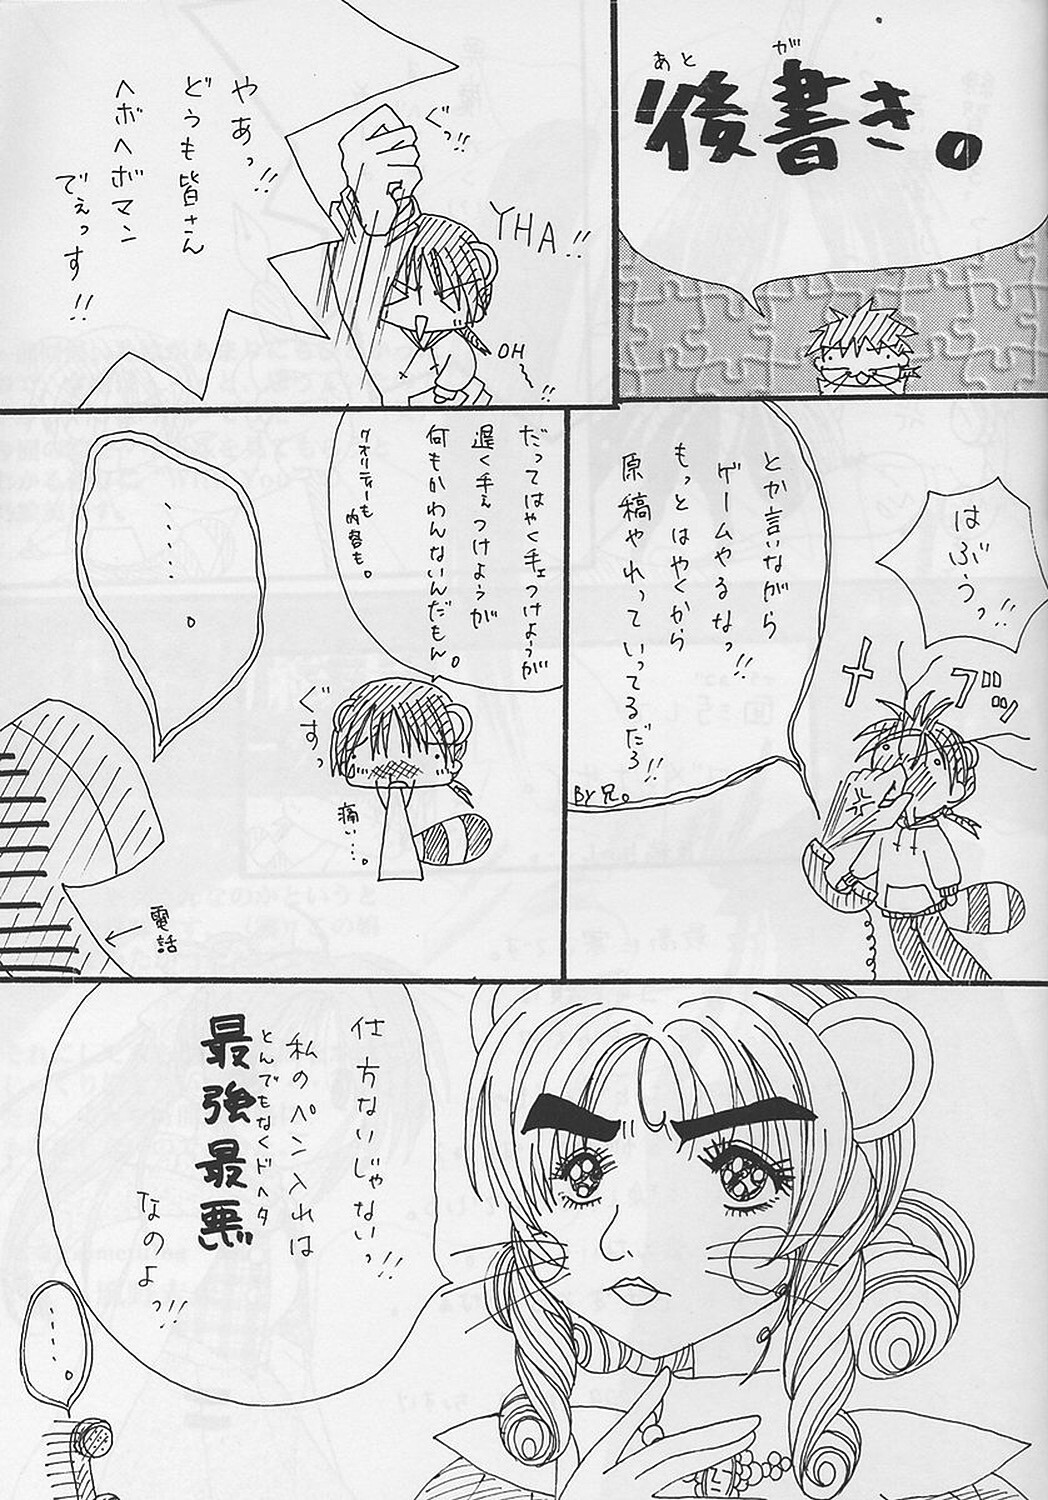 あとが
後書き。
ぐっ!!
やあっ!!
どうも皆さん
ヘボヘボマン
でぇっす!!
YHA!!
OH
!!
はぶぅっ!!
ブッ
とか言いながら
ゲームやるなっ!!
もっとはやくから
原稿やれっていってるだろ!!
BY兄。
だってはやく手ェつけようが
遅く手ぇつけようが
何もかわんないんだもん。
クオリティーも
内容も。
ぐすっ
痛い…。
……。
電話
仕方ないじゃないっ!!
私のペン入れは
とんでもなくドヘタ
最強最悪
なのよっ!!
……。